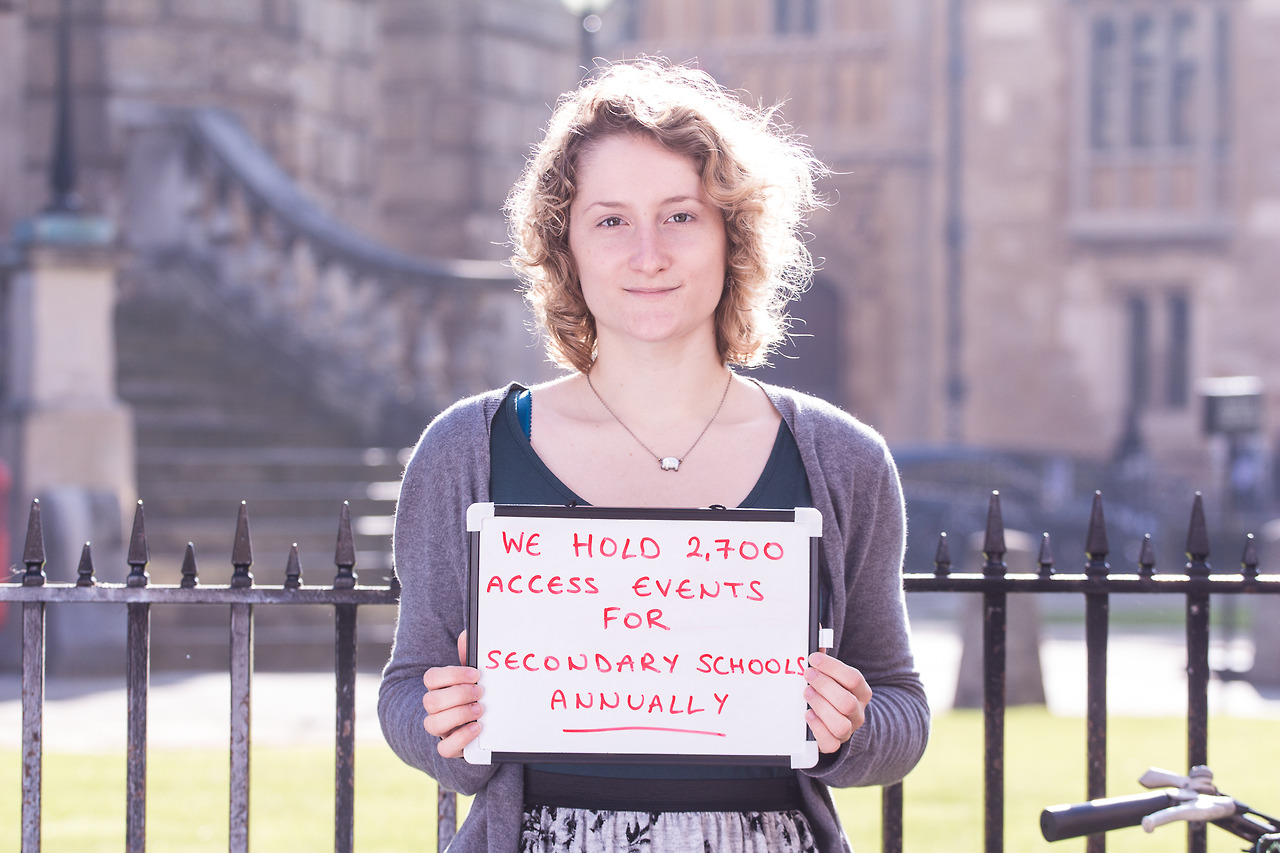 WE HOLD 2,700
ACCESS EVENTS
FOR
SECONDARY SCHOOLS
ANNUALLY